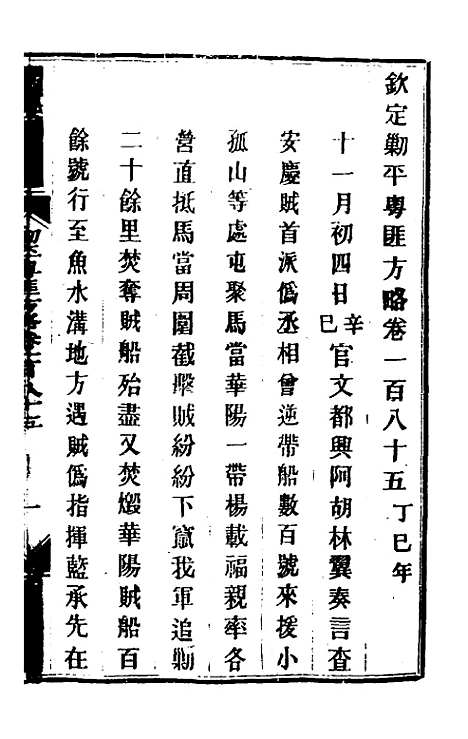 欽定勦平粵匪方略卷一百八十五丁巳年
十一月初四日辛巳官文都興阿胡林翼奏言查
安慶賊首派偽丞相曾逆帶船數百號來援小
孤山等處屯聚馬當華陽一帶楊載福親率各
營直抵馬當周圍截擊賊紛紛下竄我軍追勦
二十餘里焚奪賊船殆盡又焚燬華陽賊船百
餘號行至魚水溝地方遇賊偽指揮藍承先在